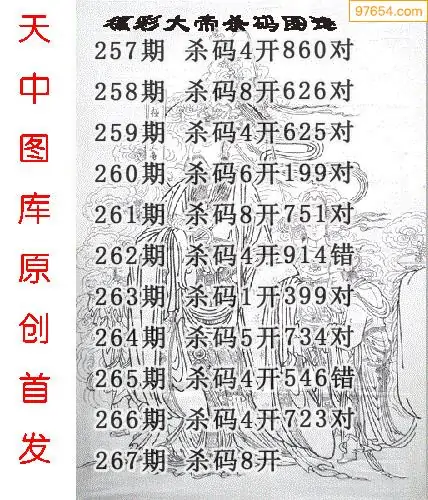 97654.com
福彩大帝杀码图谜
天中图库原创首发
257期 杀码4开860对
258期 杀码8开626对
259期 杀码4开625对
260期 杀码6开199对
261期 杀码8开751对
262期 杀码4开914错
263期 杀码1开399对
264期 杀码5开734对
265期 杀码4开546错
266期 杀码4开723对
267期 杀码8开